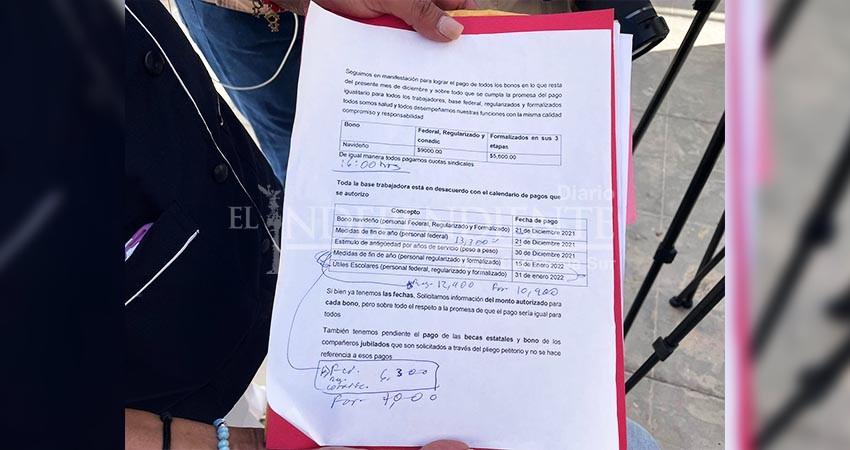 Seguimos en manifestación para lograr el pago de todos los bonos en lo que resta
del presente mes de diciembre y sobre todo que se cumpla la promesa del pago
igualitario para todos los trabajadores, base federal, regularizados y formalizados
todos somos salud y todos desempeñamos nuestras funciones con la misma calidad
compromiso y responsabilidad
Bono Federal, Regularizado y conadic Formalizados en sus 3 etapas
Navideño $9000.00 $5,600.00
De igual manera todos pagamos cuotas sindicales
16:00 hrs
Toda la base trabajadora está en desacuerdo con el calendario de pagos que
se autorizo
Diario
EL INDEPENDIENTE
Sur
Concepto Fecha de pago
Bono navideño (personal Federal, Regularizado y Formalizado) 21 de Diciembre 2021
Medidas de fin de año (personal federal) 13,300 21 de Diciembre 2021
Estimulo de antigüedad por años de servicio (peso a peso) 30 de Diciembre 2021
Medidas de fin de año (personal regularizado y formalizado) 15 de Enero 2022
Útiles Escolares (personal federal, regularizado y formalizado) 31 de enero 2022
Reg- 12,900 For 10,900
Si bien ya tenemos las fechas, Solicitamos información del monto autorizado para
cada bono, pero sobre todo el respeto a la promesa de que el pago sería igual para
todos
También tenemos pendiente el pago de las becas estatales y bono de los
compañeros jubilados que son solicitados a través del pliego petitorio y no se hace
referencia a esos pagos
Fed. 6,300
reg.
For- 4,000